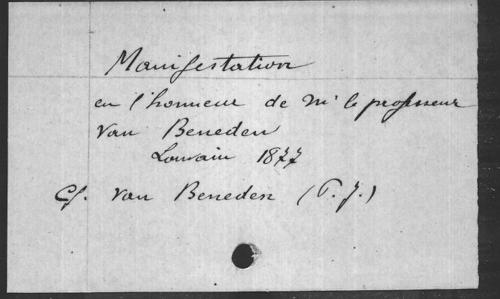 Manifestation
en l'honneur de Mr le professeur
Van Beneden
Louvain 1877
Cf. Van Beneden (P. J.)